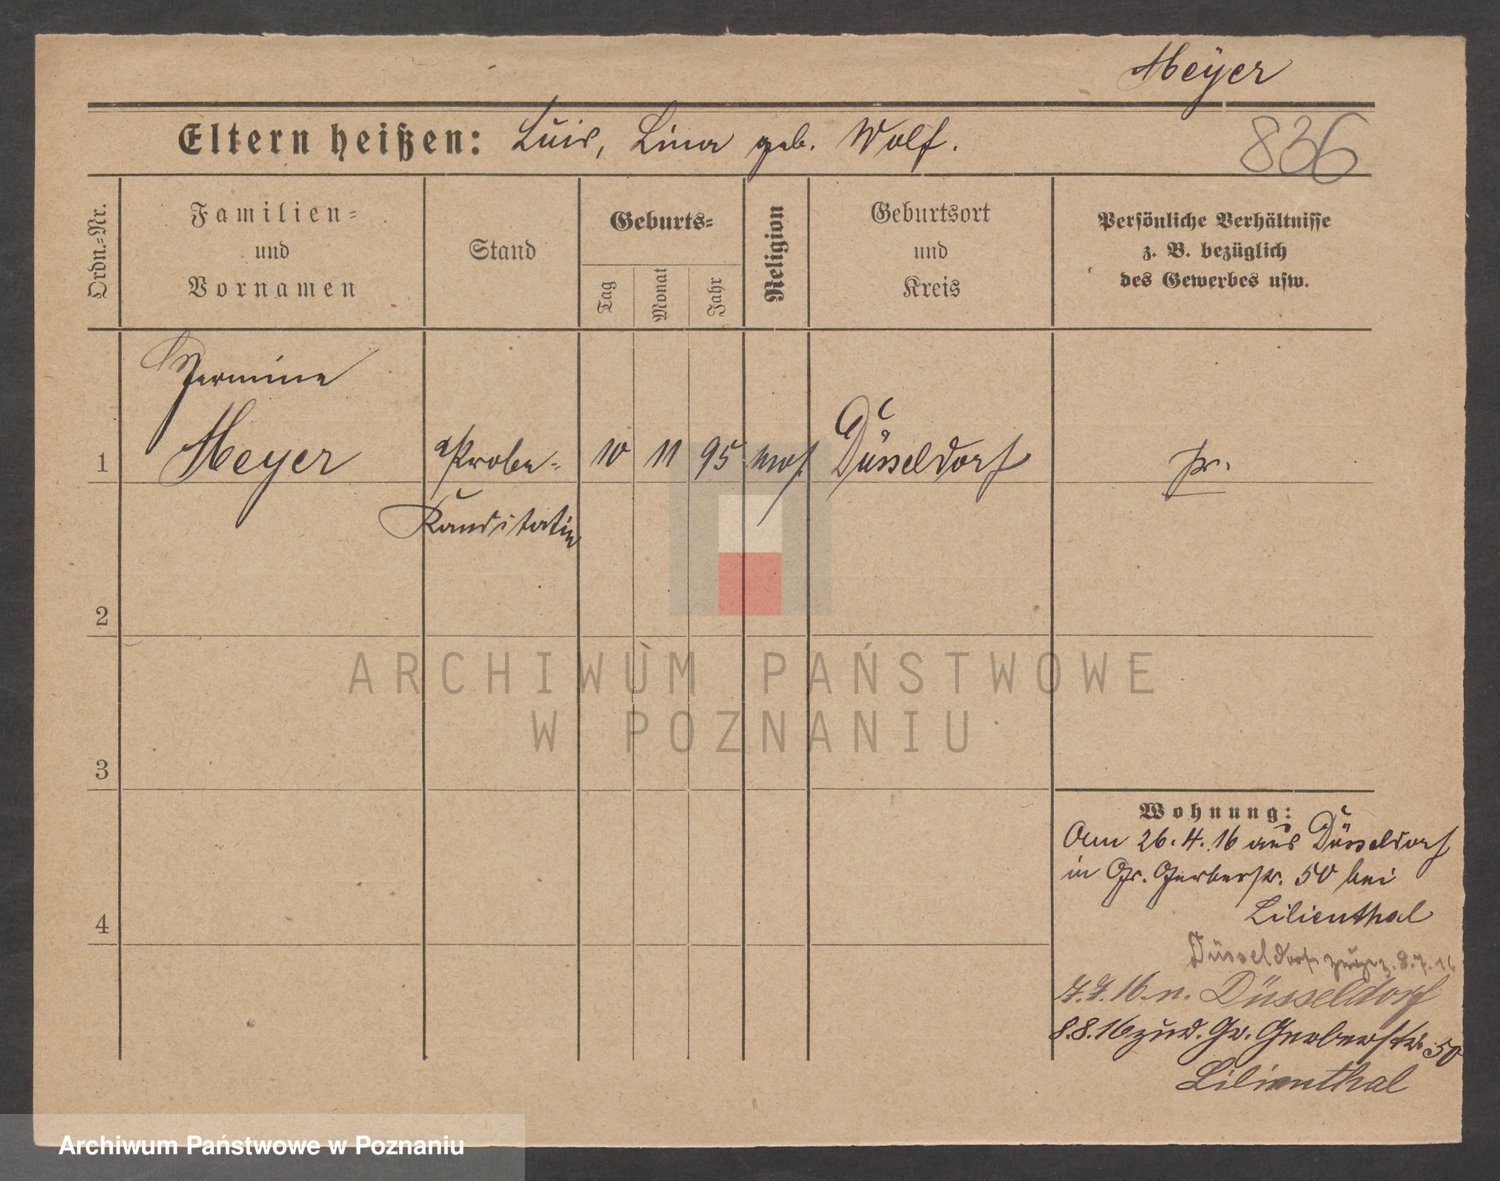 Meÿer
Eltern heißen: Luis, Lina geb. Wolf.
836
Ordn.=Nr.
Familien=
und
Vornamen
Stand
Geburts=
Tag
Monat
Jahr
Religion
Geburtsort
und
Kreis
Persönliche Verhältnisse
z. B. bezüglich
des Gewerbes usw.
Hermine
1 Meyer Probe- 10 11 95 mos. Düsseldorf pr.
Kanditatin
2
3
4
ARCHIWUM PAŃSTWOWE
W POZNANIU
Wohnung:
Am 26.4.16 aus Düsseldorf
in Gr. Gerberstr. 50 bei
Lilienthal
Düsseldorf 8.7.16
7.7.16. n. Düsseldorf
8.8.16 zud. Gr. Gerberstr. 50
Lilienthal
Archiwum Państwowe w Poznaniu